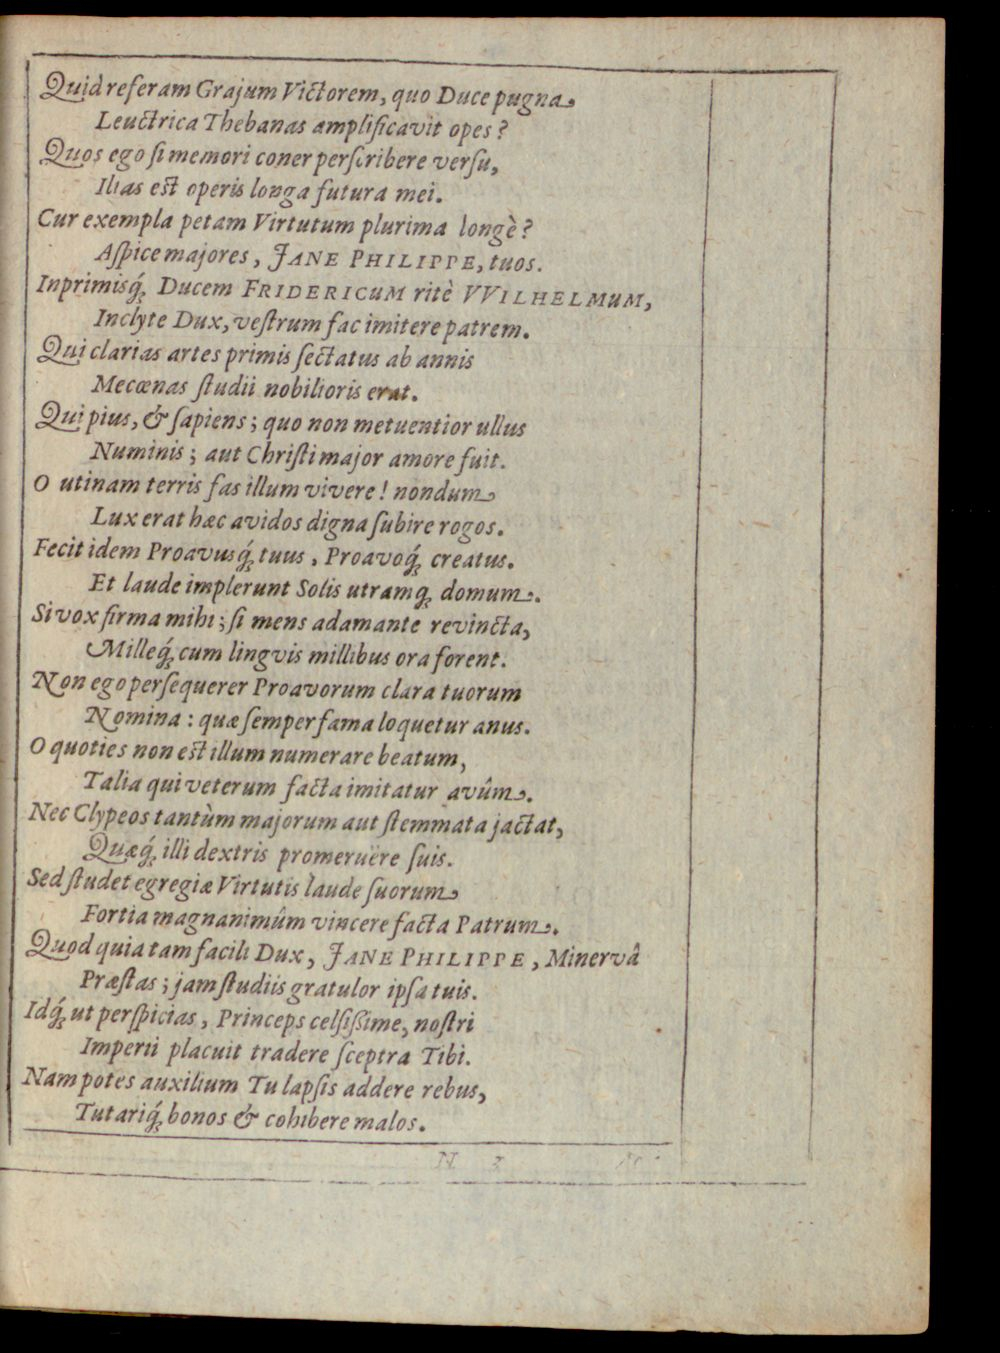 Quid referam Grajum Victorem, quo Duce pugna
Leuctrica Thebanas amplificavit opes?
Quos ego ſi memori coner perſcribere verſu,
Ilias est operis longa futura mei.
Cur exempla petam Virtutum plurima longè?
Aſpice majores, JANE PHILIPPE, tuos.
Inprimisq́; Ducem FRIDERICUM ritè VVILHELMUM,
Inclyte Dux, veſtrum fac imitere patrem.
Qui clarias artes primis ſectatus ab annis
Mecœnas ſtudii nobilioris erat.
Qui pius, & ſapiens; quo non metuentior ullus
Numinis; aut Chriſti major amore fuit.
O utinam terris fas illum vivere! nondum
Lux erat hæc avidos digna ſubire rogos.
Fecit idem Proavusq́; tuus, Proavoq́; creatus.
Et laude implerunt Solis utramq; domum.
Si vox firma mihi; ſi mens adamante revincta,
Milleq́; cum lingvis millibus ora forent.
Non ego perſequerer Proavorum clara tuorum
Nomina: quæ ſemper fama loquetur anus.
O quoties non est illum numerare beatum,
Talia qui veterum facta imitatur avûm.
Nec Clypeos tantùm majorum aut ſtemmata jactat,
Quæq́; illi dextris promeruëre ſuis.
Sed ſtudet egregiæ Virtutis laude ſuorum
Fortia magnanimûm vincere facta Patrum.
Quod quia tam facili Dux, JANE PHILIPPE, Minervâ
Præſtas; jam ſtudiis gratulor ipſa tuis.
Idq́; ut perſpicias, Princeps celſiſſime, noſtri
Imperii placuit tradere ſceptra Tibi.
Nam potes auxilium Tu lapſis addere rebus,
Tutariq́; bonos & cohibere malos.
N 3